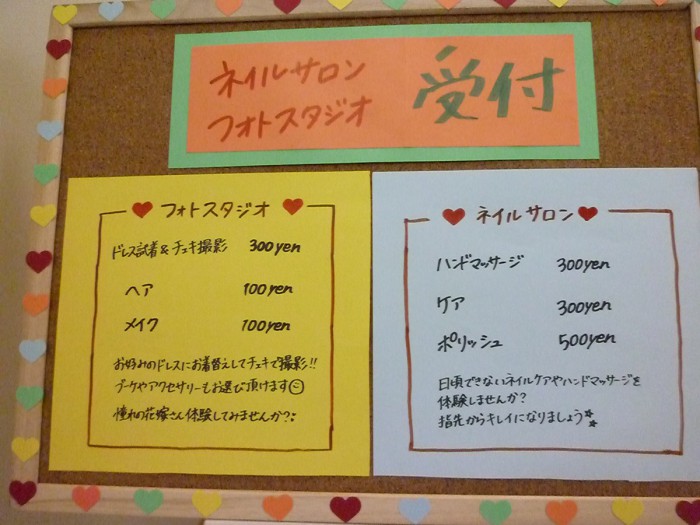 ネイルサロン
フォトスタジオ
受付
フォトスタジオ
ドレス試着&チェキ撮影 300yen
ヘア 100yen
メイク 100yen
お好みのドレスにお着替えしてチェキで撮影!!
ブーケやアクセサリーもお選び頂けます
憧れの花嫁さん体験してみませんか?
ネイルサロン
ハンドマッサージ 300yen
ケア 300yen
ポリッシュ 500yen
日頃できないネイルケアやハンドマッサージを
体験しませんか?
指先からキレイになりましょう